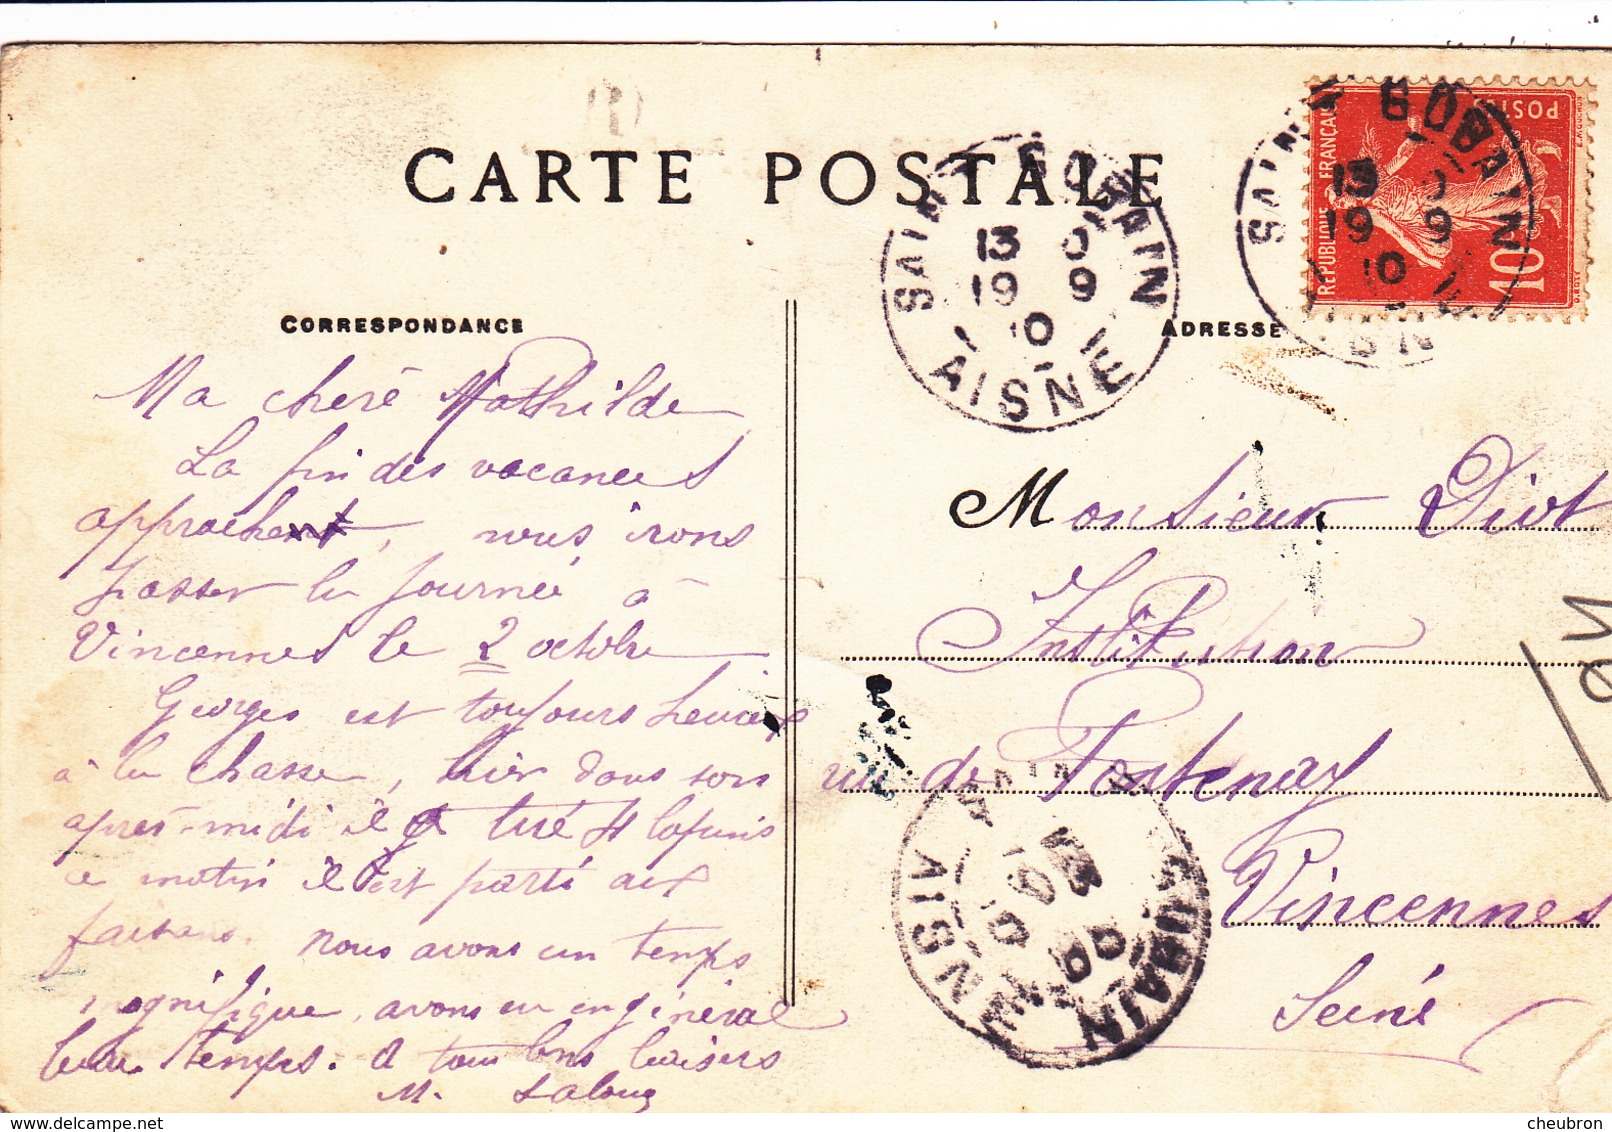 CARTE POSTALE
CORRESPONDANCE
Ma cheré Mathilde
La fin des vacances
approchent, nous irons
passer la journée à
Vincennes le 2 octobre
Georges est toujours heureux
à la chasse, hier dans son
après-midi il a tiré 4 lapins
ce matin il est parti aux
faisans. nous avons un temps
magnifique, avons eu en général
beau temps. à tous bons baisers
M. Laloug
ADRESSE
SAINT GOBAIN
13 9
19 9
10
AISNE
SAINT GOBAIN
13 9
19 9
10
REPUBLIQUE FRANÇAISE
POSTES
10
Monsieur Diot
Institution
rue de Fontenay
Vincennes
Seine
AISNE
cheubron
delcampe.net